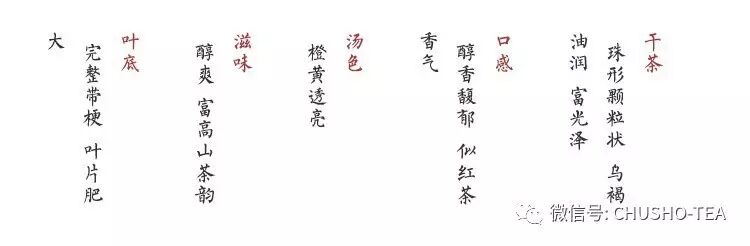 干茶
珠形颗粒状 乌褐
油润 富光泽
口感
醇香馥郁 似红茶
香气
汤色
橙黄透亮
滋味
醇爽 富高山茶韵
叶底
完整带梗 叶片肥
大
微信号: CHUSHO-TEA